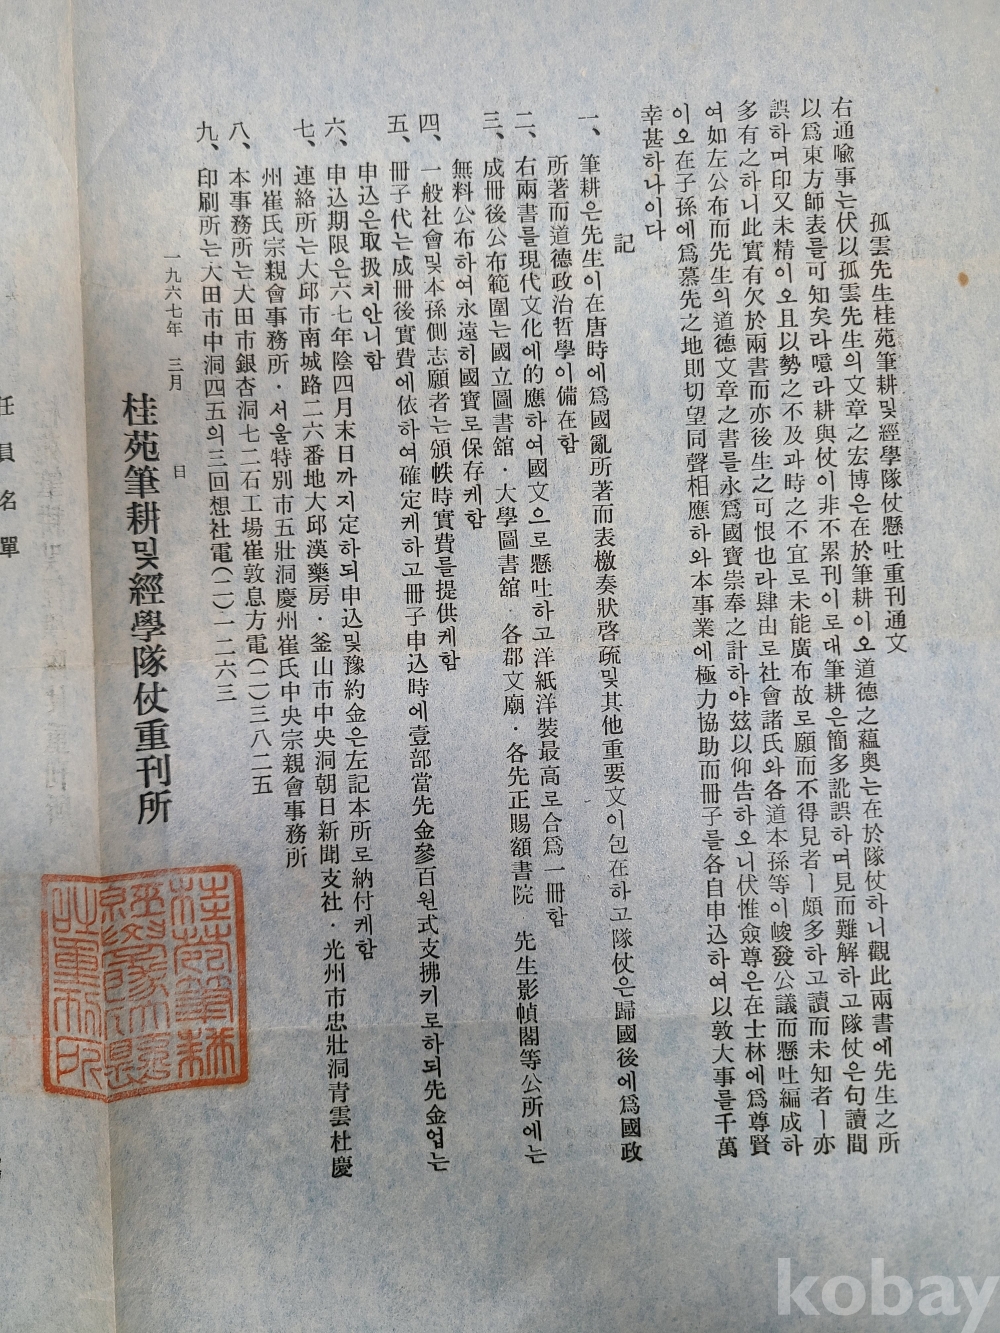 孤雲先生桂苑筆耕및經學隊仗懸吐重刊通文
右通喩事는伏以孤雲先生의文章之宏博은在於筆耕이오道德之蘊奧는在於隊仗하니觀此兩書에先生之所
以爲東方師表를可知矣라噫라耕與仗이非不累刊이로대筆耕은簡多訛誤하며見而難解하고隊仗은句讀間
誤하며印又未精이오且以勢之不及과時之不宜로未能廣布故로願而不得見者ㅣ頗多하고讀而未知者ㅣ亦
多有之하니此實有欠於兩書而亦後生之可恨也라肆由로社會諸氏와各道本孫等이峻發公議而懸吐編成하
여如左公布而先生의道德文章之書를永爲國寶崇奉之計하야玆以仰告하오니伏惟僉尊은在士林에爲尊賢
이오在子孫에爲慕先之地則切望同聲相應하와本事業에極力協助而冊子를各自申込하여以敦大事를千萬
幸甚하나이다
記
一、筆耕은先生이在唐時에爲國亂所著而表檄奏狀啓疏및其他重要文이包在하고隊仗은歸國後에爲國政
所著而道德政治哲學이備在함
二、右兩書를現代文化에的應하여國文으로懸吐하고洋紙洋裝最高로合爲一冊함
三、成冊後公布範圍는國立圖書舘·大學圖書舘·各郡文廟·各先正賜額書院·先生影幀閣等公所에는
無料公布하여永遠히國寶로保存케함
四、一般社會및本孫側志願者는頒帙時實費를提供케함
五、冊子代는成冊後實費에依하여確定케하고冊子申込時에壹部當先金參百원式支拂키로하되先金업는
申込은取扱치안니함
六、申込期限은六七年陰四月末日까지定하되申込및豫約金은左記本所로納付케함
七、連絡所는大邱市南城路二六番地大邱漢藥房·釜山市中央洞朝日新聞支社·光州市忠壯洞靑雲杜慶
州崔氏宗親會事務所·서울特別市五壯洞慶州崔氏中央宗親會事務所
八、本事務所는大田市銀杏洞七二石工場崔敦息方電(二)三八二五
九、印刷所는大田市中洞四五의三回想社電(二)一二六三
一九六七年 三月 日
桂苑筆耕및經學隊仗重刊所
任員名單
kobay